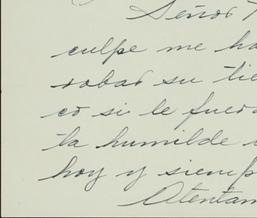 Señor
culpe me ha
robar su tie
co si le fuer
la humilde
hoy y siemp
Atentam